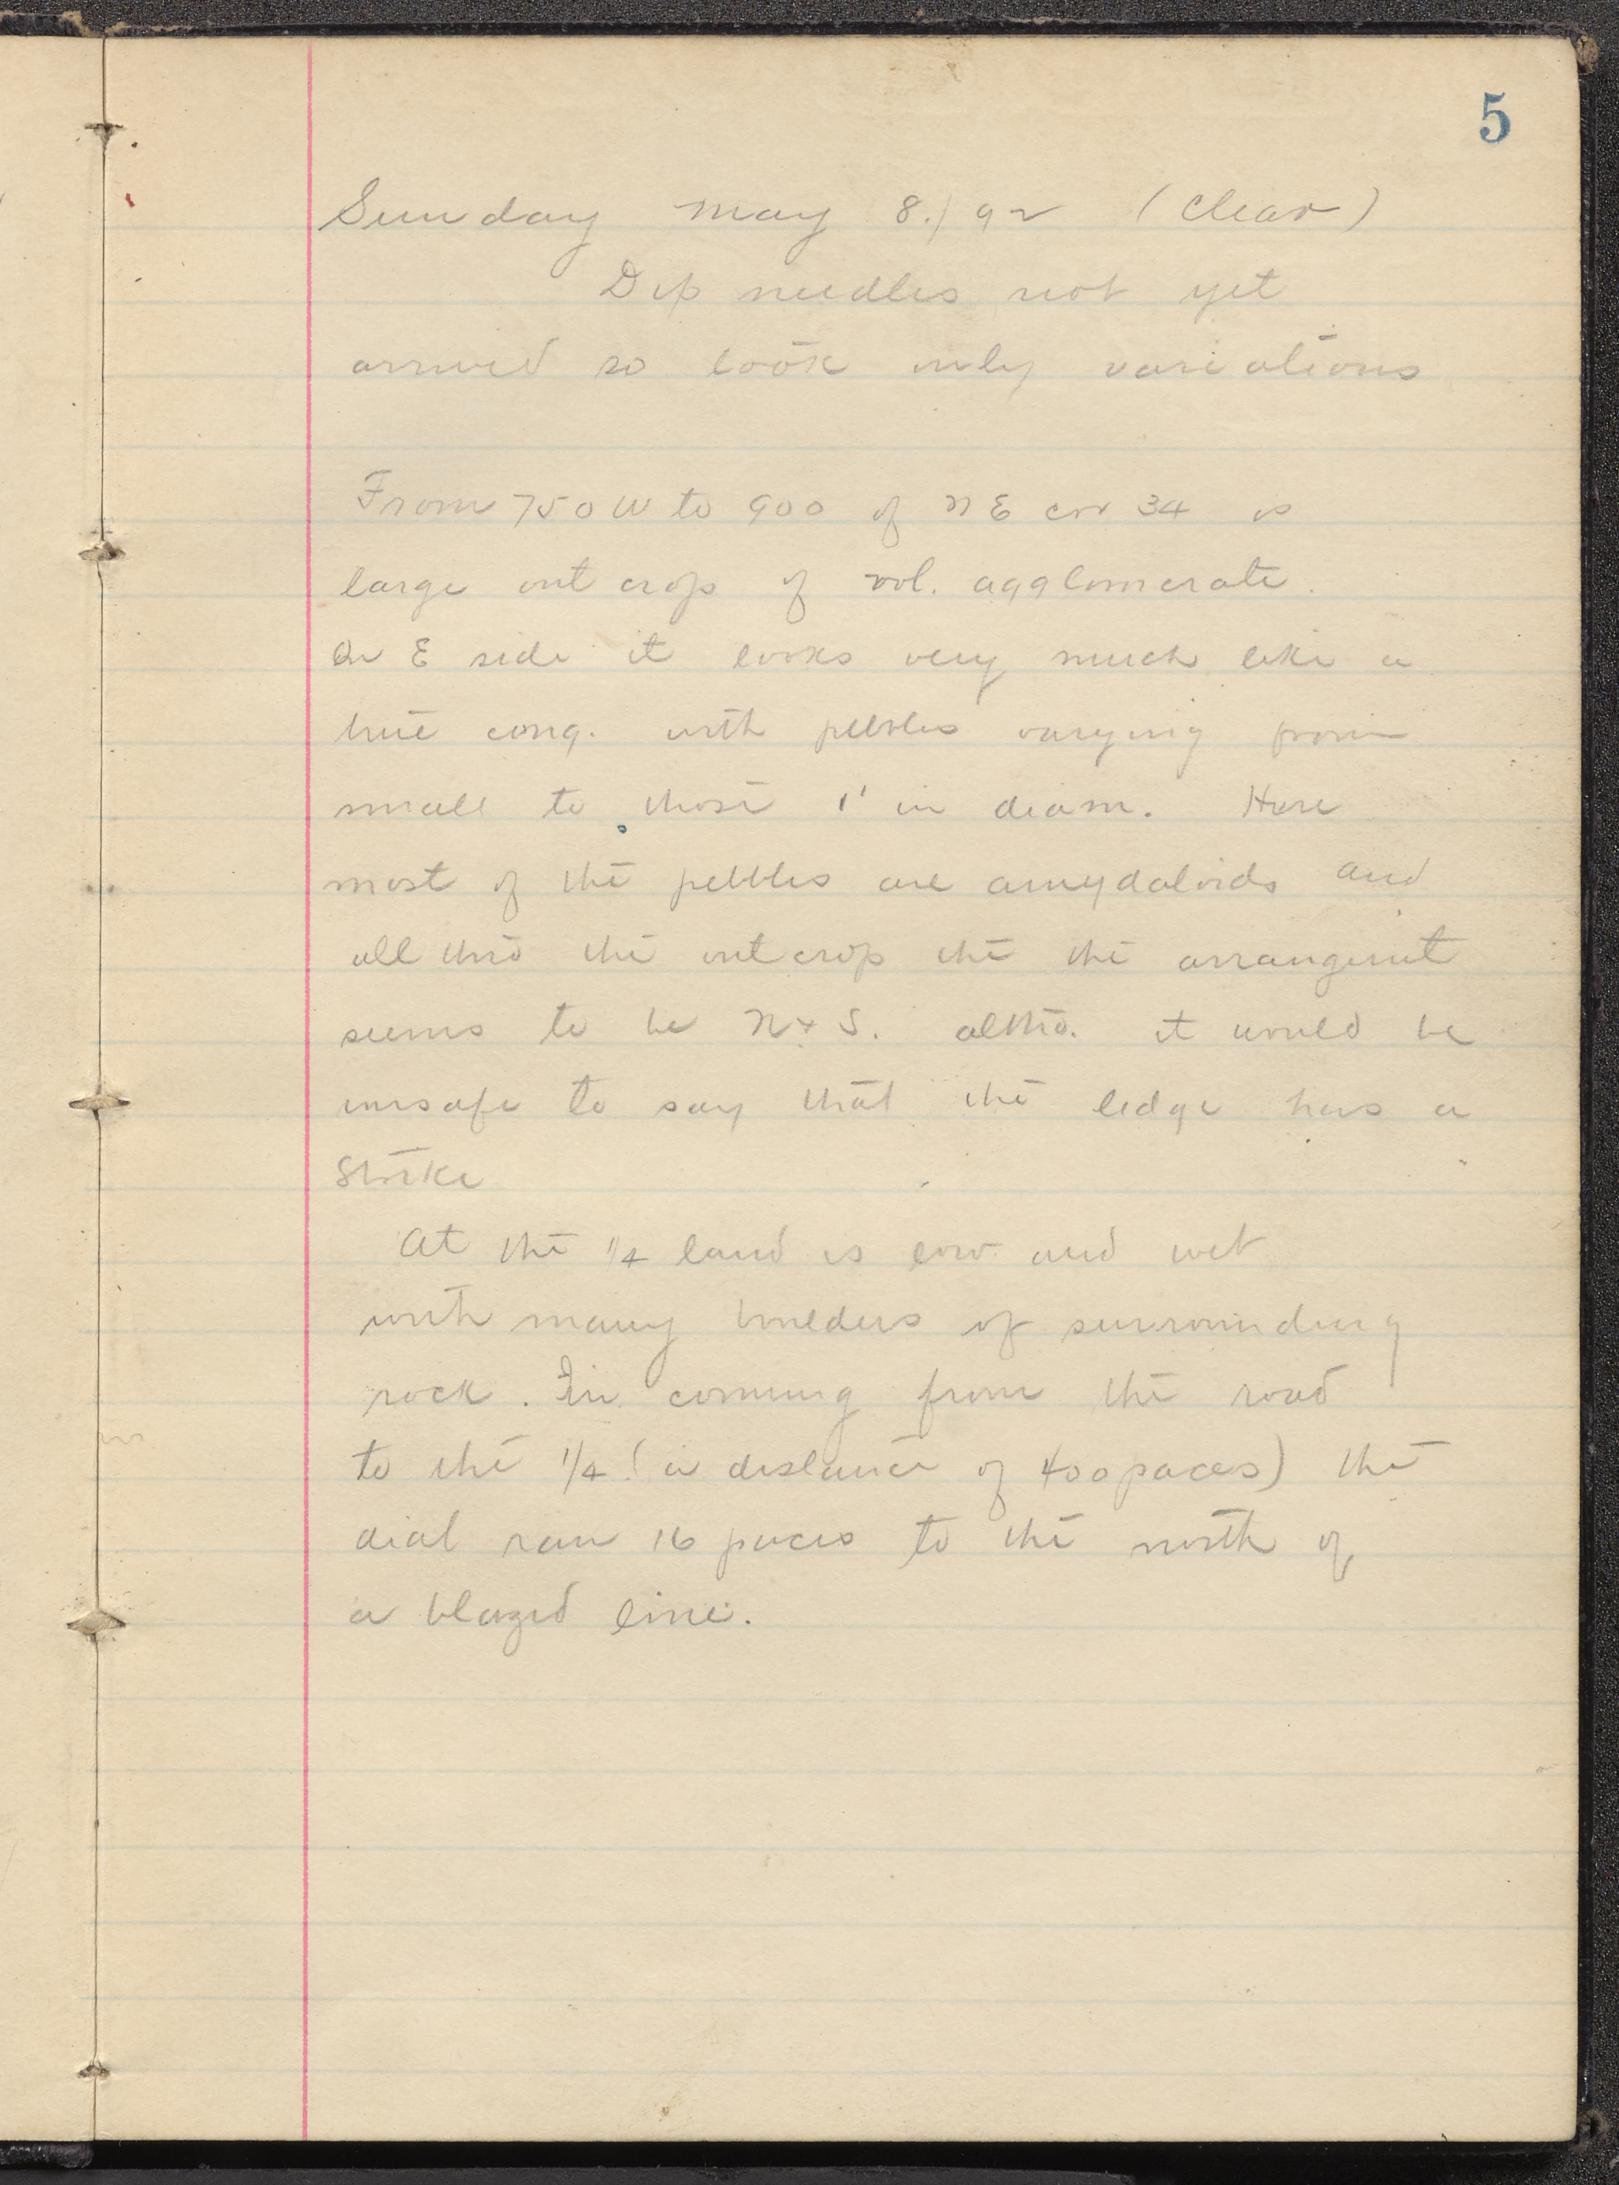 5
Sunday May 8./92 (Clear)
Dip needles not yet
arrived so took only variations
From 750 W to 900 of NE cor 34 is
large out crop of vol. agglomerate.
On E side it looks very much like a
true cong. with pebbles varying from
small to those 1' in diam. Here
most of the pebbles are amygdaloids and
all thro the outcrop the the arrangemt
seems to be N + S. altho. it would be
unsafe to say that the ledge has a
Strike
At the 1/4 land is low and wet
with many boulders of surrounding
rock. In coming from the road
to the 1/4 (a distance of 400 paces) the
dial ran 16 paces to the north of
a blazed line.